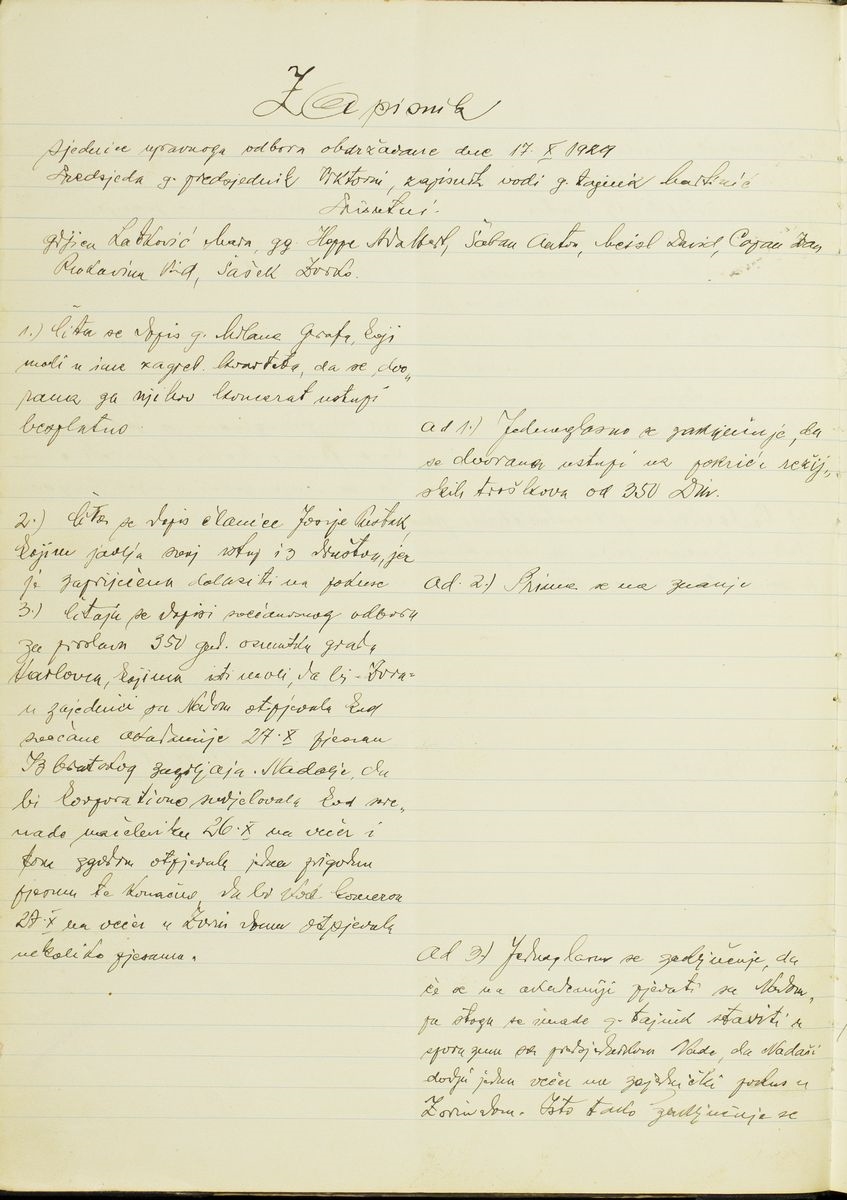 Zapisnik
sjednice upravnoga odbora obdržavane dne 17. X 1929
Predsjeda g. predsjednik, zapisnik vodi g. tajnik Martinić
Prisutni:
gdjica Latković Mara, gg. Hoppe Adalbert, Šaban Anton, Meisl David, Capan Ivan
Rukavina Vid, Šašek Zorko.
1.) Čita se dopis g. Milana Grafa, koji
moli u ime zagreb. kvarteta, da se dvo„
rana za njihov koncerat ustupi
besplatno.
ad 1.) Jednoglasno se zaključuje, da
se dvorana ustupi uz pokriće režij„
skih troškova od 350 Din.
2.) Čita se dopis članice Josipe
kojim javlja svoj istup iz društva, jer
je zapriječena dolaziti na pokuse
ad. 2.) Prima se na znanje
3.) Čitaju se dopisi svečanosnog odbora
za proslavu 350 god. osnutka grada
Karlovca, kojima isti moli, da bi „Zora„
u zajednici sa Nadom otpjevala kod
svečane akademije 27. X pjesmu
Iz bratskog zagrljaja. Nadalje, da
bi korporativno sudjelovala kod sere„
nade načelniku 26. X na večer i
tom zgodom otpjevala jednu prigodnu
pjesmu te konačno, da bi kod komersa
27. X na večer u Zorin domu otpjevala
nekoliko pjesama.
ad 3.) Jednoglasno se zaključuje, da
će se na akademiji pjevati sa Nadom,
pa stoga se imade g. tajnik staviti u
sporazum sa predsjednikom Nade, da Nadaši
dodju jednu večer na zajednički pokus u
Zorin dom. Isto tako zaključuje se